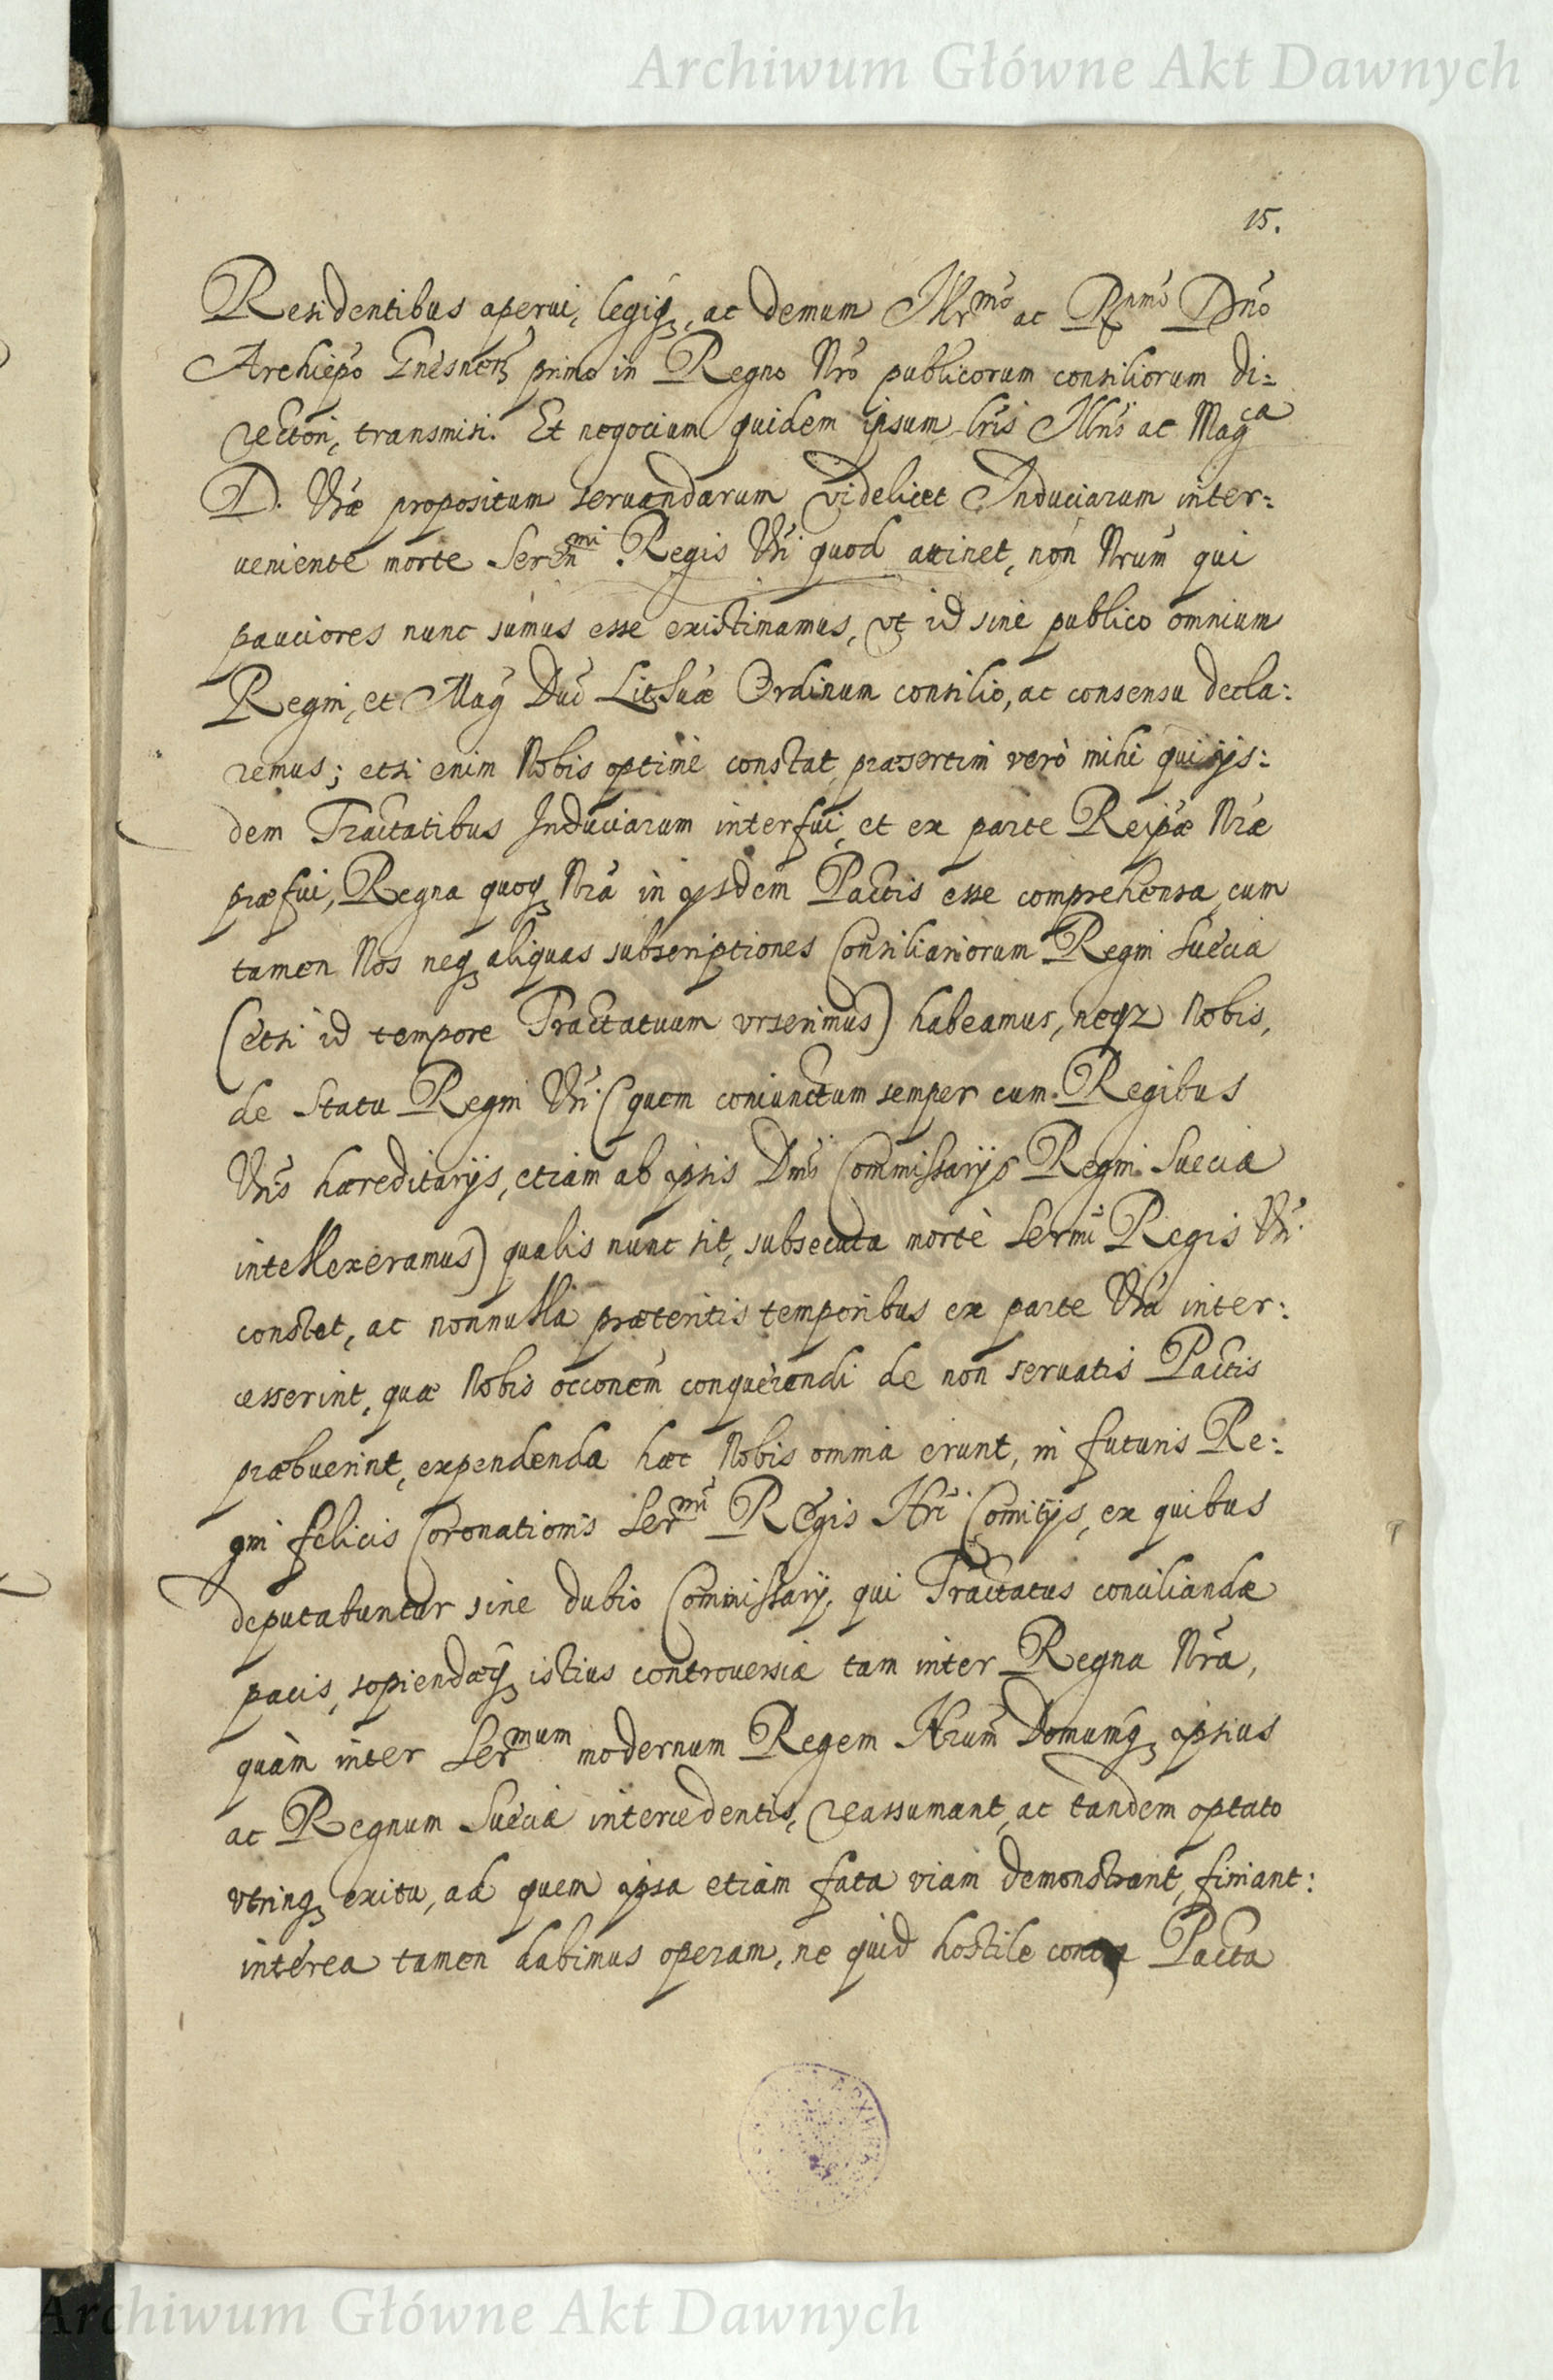 Archiwum Główne Akt Dawnych
15.
Residentibus aperui, legiq₃, ac demum Illr^mo ac R^nmo Dno
Archiepo Gnesnen primo in Regno Nro publicorum consiliorum di=
rectori, transmisi. Et negocium quidem ipsum lris Illris ac Mag^ca
D. Vræ propositum seruandarum videlicet Induciarum inter=
ueniente morte Seren^mi Regis Vri quod attinet, non Nrum qui
pauciores nunc sumus esse existimamus, vt id sine publico omnium
Regni, et Mag Duc Lithuæ Ordinum consilio, ac consensu decla:
remus; etsi enim Nobis optimè constat præsertim verò mihi qui ijs:
dem Tractatibus Induciarum interfui, et ex parte Reipæ Nræ
præfui, Regna quoq₃ Nra in ijsdem Pactis esse comprehensa, cum
tamen Nos neq₃ aliquas subscriptiones Consiliariorum Regni Suecia
(etsi id tempore Tractatuum vrserimus) habeamus, neqz Nobis,
de Statu Regni Vri (quem coniunctum semper cum Regibus
Vris hæreditarijs, etiam ab ipsis Dnis Commissarijs Regni Sueciæ
intellexeramus) qualis nunc sit, subsecuta morte Sermi Regis Vri
constet, ac nonnulla præteritis temporibus ex parte Vra inter:
cesserint, quæ Nobis occonem conquerendi de non seruatis Pactis
præbuerint, expendenda hæc Nobis omnia erunt, in futuris Re:
gni felicis Coronationis Ser^mi Regis Nri Comitijs, ex quibus
deputabuntur sine dubio Commissarij, qui Tractatus conciliandæ
pacis, sopiendæq₃ istius controuersiæ tam inter Regna Nra,
quàm inter Ser^mum modernum Regem Nrum Domumq₃ ipsius
ac Regnum Sueciæ intercedentis, reassumant, ac tandem optato
vtrinq₃ exitu, ad quem ipsa etiam fata viam demonstrant, finiant:
interea tamen dabimus operam, ne quid hostile contra Pacta
Archiwum Główne Akt Dawnych